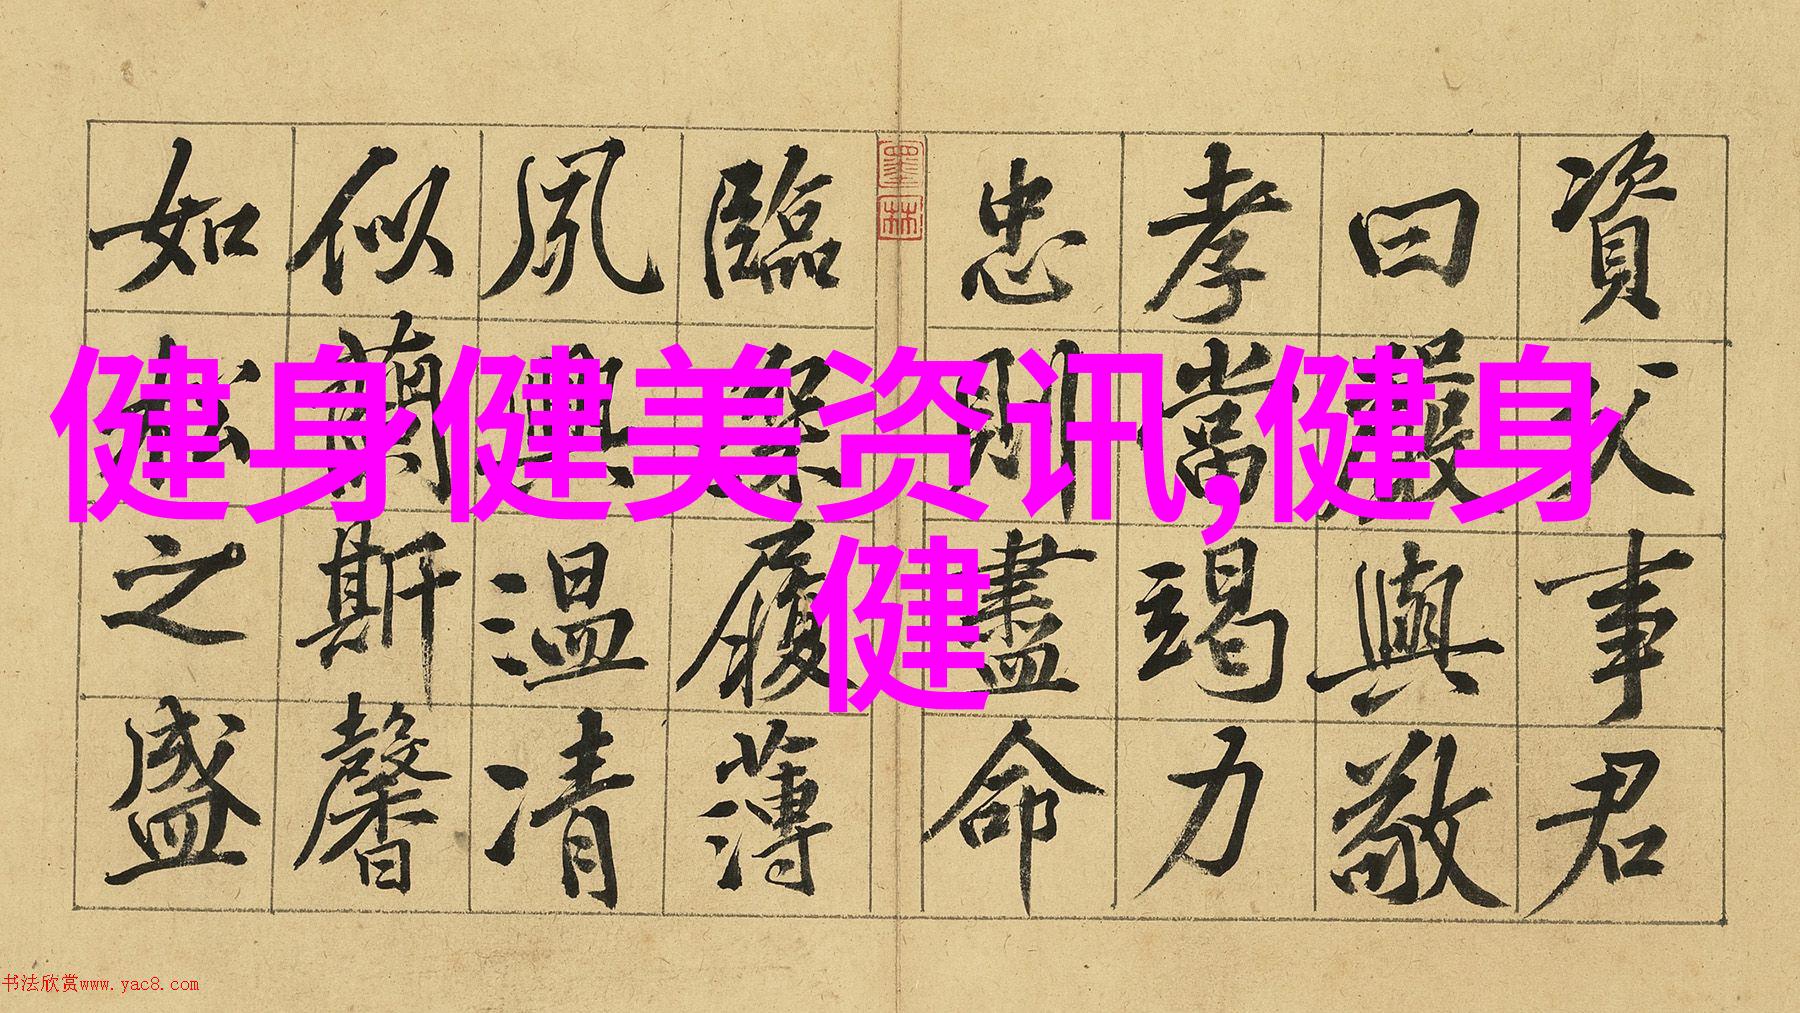 健身健美资讯,健身
健
資父事君
曰嚴與敬
孝當竭力
忠則盡命
墨林
臨深履薄
夙興温凊
似蘭斯馨
如松之盛
书法欣赏www.yac8.com